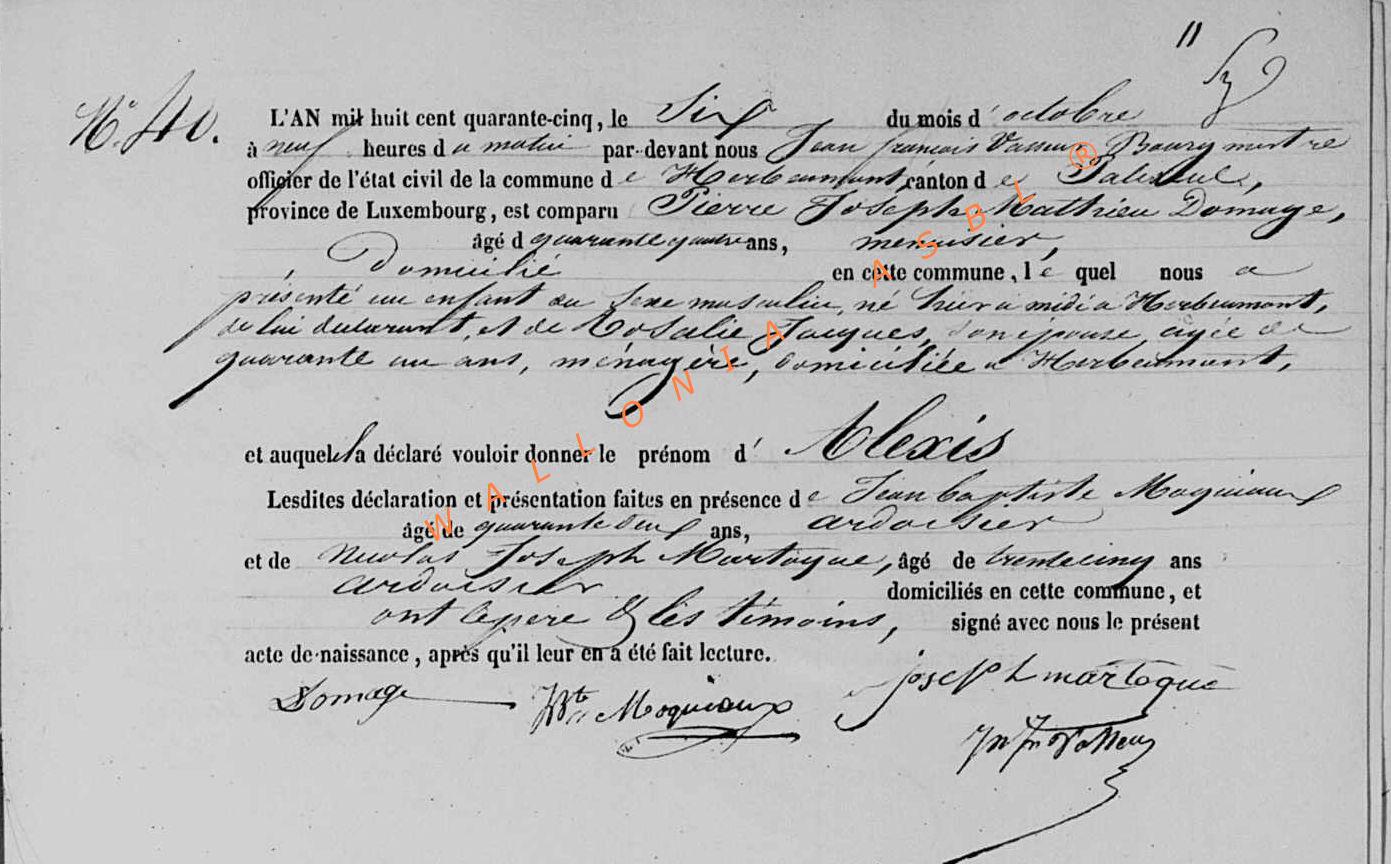 11
N° 40.
L'AN mil huit cent quarante-cinq, le Six du mois d'octobre
à neuf heures du matin par-devant nous Jean françois Vasseur Bourgmestre
officier de l'état civil de la commune de Herbeumont, canton de Paliseul,
province de Luxembourg, est comparu Pierre Joseph Mathieu Domage,
âgé d quarante quatre ans, menuisier,
Domicilié en cette commune, lequel nous a
présenté un enfant du Sexe masculin, né hier a midi a Herbeumont,
de lui déclarant, et de Rosalie Jacques, son epouse, agée de
quarante un ans, ménagère, domiciliée a Herbeumont,
et auquel il a déclaré vouloir donner le prénom d' Alexis
Lesdites déclaration et présentation faites en présence de Jean baptiste Moquiaux
âgé de quarante deux ans, ardoisier
et de Nicolas Joseph Martoque, âgé de trente cinq ans
ardoisier domiciliés en cette commune, et
ont le pere & les témoins, signé avec nous le présent
acte de naissance, après qu'il leur en a été fait lecture.
Domage JBte Moquiaux joseph martoque
Jn Fs Vasseur
WALLONIA ASBL ®